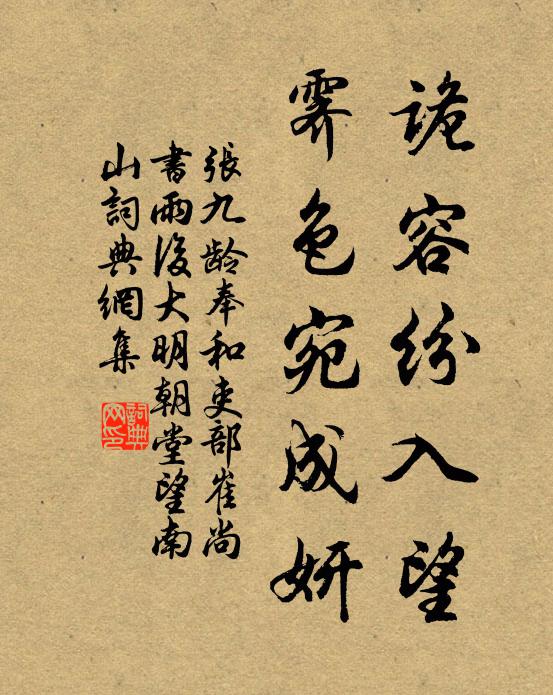 詭容紛入望
霽色宛成妍
張九齡奉和吏部崔尚
書雨後大明朝堂望南
山詞典網集
詞典網印